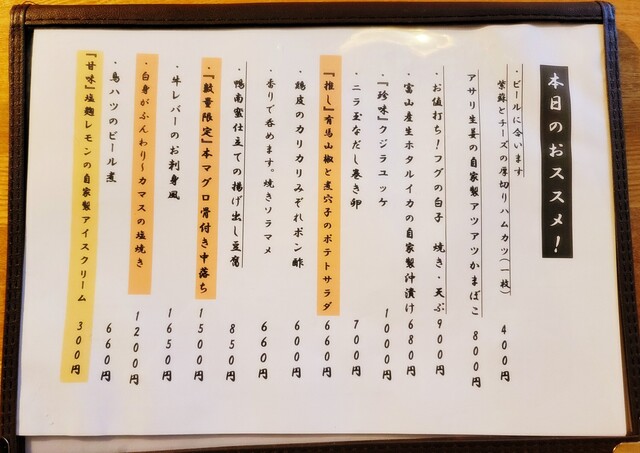 本日のおススメ!
・ビールに合います
紫蘇とチーズの厚切りハムカツ(一枚) 400円
アサリ生姜の自家製アツアツかまぼこ 800円
・お値打ち!フグの白子 焼き・天ぷ 900円
・富山産生ホタルイカの自家製沖漬け 680円
・『珍味』クジラユッケ 1000円
・ニラ玉なだし巻き卵 700円
・『推し』有馬山椒と煮穴子のポテトサラダ 660円
・鶏皮のカリカリみぞれポン酢 600円
・香りで呑めます。焼きソラマメ 660円
・鴨南蜜仕立ての揚げ出し豆腐 850円
・『数量限定』本マグロ骨付き中落ち 1500円
・牛レバーのお刺身風 1650円
・白身がふんわり~カマスの塩焼き 1200円
・鳥ハツのビール煮 660円
『甘味』塩麹レモンの自家製アイスクリーム 300円